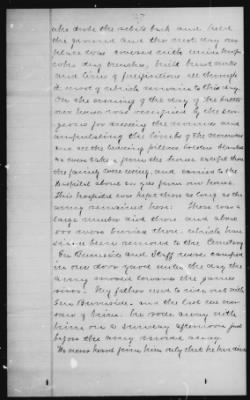 who drove the rebels back and held
the ground and the next day our
place was covered with union troops
who dug trenches, built breastworks
and lines of fortifications all through
it most of which remain to this day
On the evening of the day of the battle
our house was occupied by the sur-
geons for dressing the wounds and
amputating the limbs of the wounded
and all the bedding pillows bolsters blankets
were taken from the house except that
the family were using, and carried to the
Hospital about from our house.
This hospital was kept there as long as the
army remained here. There was a
large number died there and about
were buried there. which have
since been removed to the Cemetery
Gen Burnside and Staff were camped
in our door yard until the day the
army moved toward the James
river. My father went to ride out with
Gen Burnside. and the last we ever
saw of him. he rode away with
him on a Sunday afternoon just
before the army moved away.
We never heard from him only that he